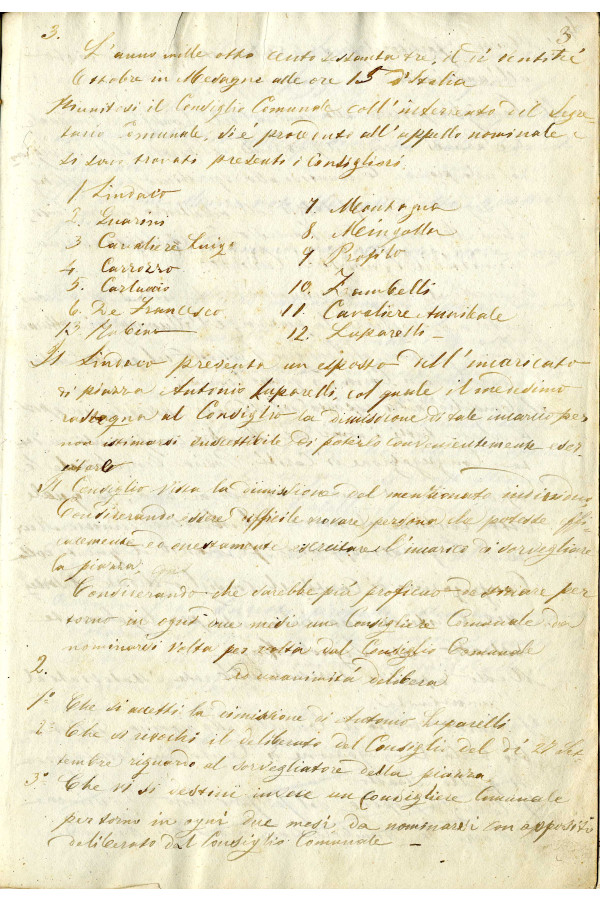 3. 3
L'anno mille otto cento sessanta tre, il dì ventitré
Ottobre in Mesagne alle ore 15 d'Italia
Riunitosi il Consiglio Comunale coll'intervento del Segre
tario Comunale, si è proceduto all'appello nominale e
si son trovati presenti i Consiglieri
1. Sindaco
2. Guarini
3. Cavaliere Luigi
4. Carrozzo
5. Carluccio
6. De Francesco
13. Rubino
7. Montagna
8. Mingolla
9. Profilo
10. Zambelli
11. Cavaliere Annibale
12. Luparelli
Il Sindaco presenta un esposto dell'incaricato
di piazza Antonio Luparelli, col quale il medesimo
rassegna al Consiglio la dimissione di tale incarico per
non istimarsi suscettibile di poterlo convenientemente eser
citarlo
Il Consiglio vista la dimissione del menzionato
Considerando essere difficile trovare persona che potesse
ed onestamente esercitare l'incarico di sorvegliare
la piazza
Considerando che sarebbe più proficuo per
torno in ogni due mesi un Consigliere Comunale da
nominarsi volta per volta dal Consiglio Comunale
2. Ad unanimità delibera
1º Che si accetti la dimissione di Antonio Luparelli
2º Che si revochi il deliberato del Consiglio del dì 27 Set
tembre riguardo al sorvegliatore della piazza.
3º Che vi si destini invece un Consigliere Comunale
per torno in ogni due mesi da nominarsi con apposito
deliberato dal Consiglio Comunale